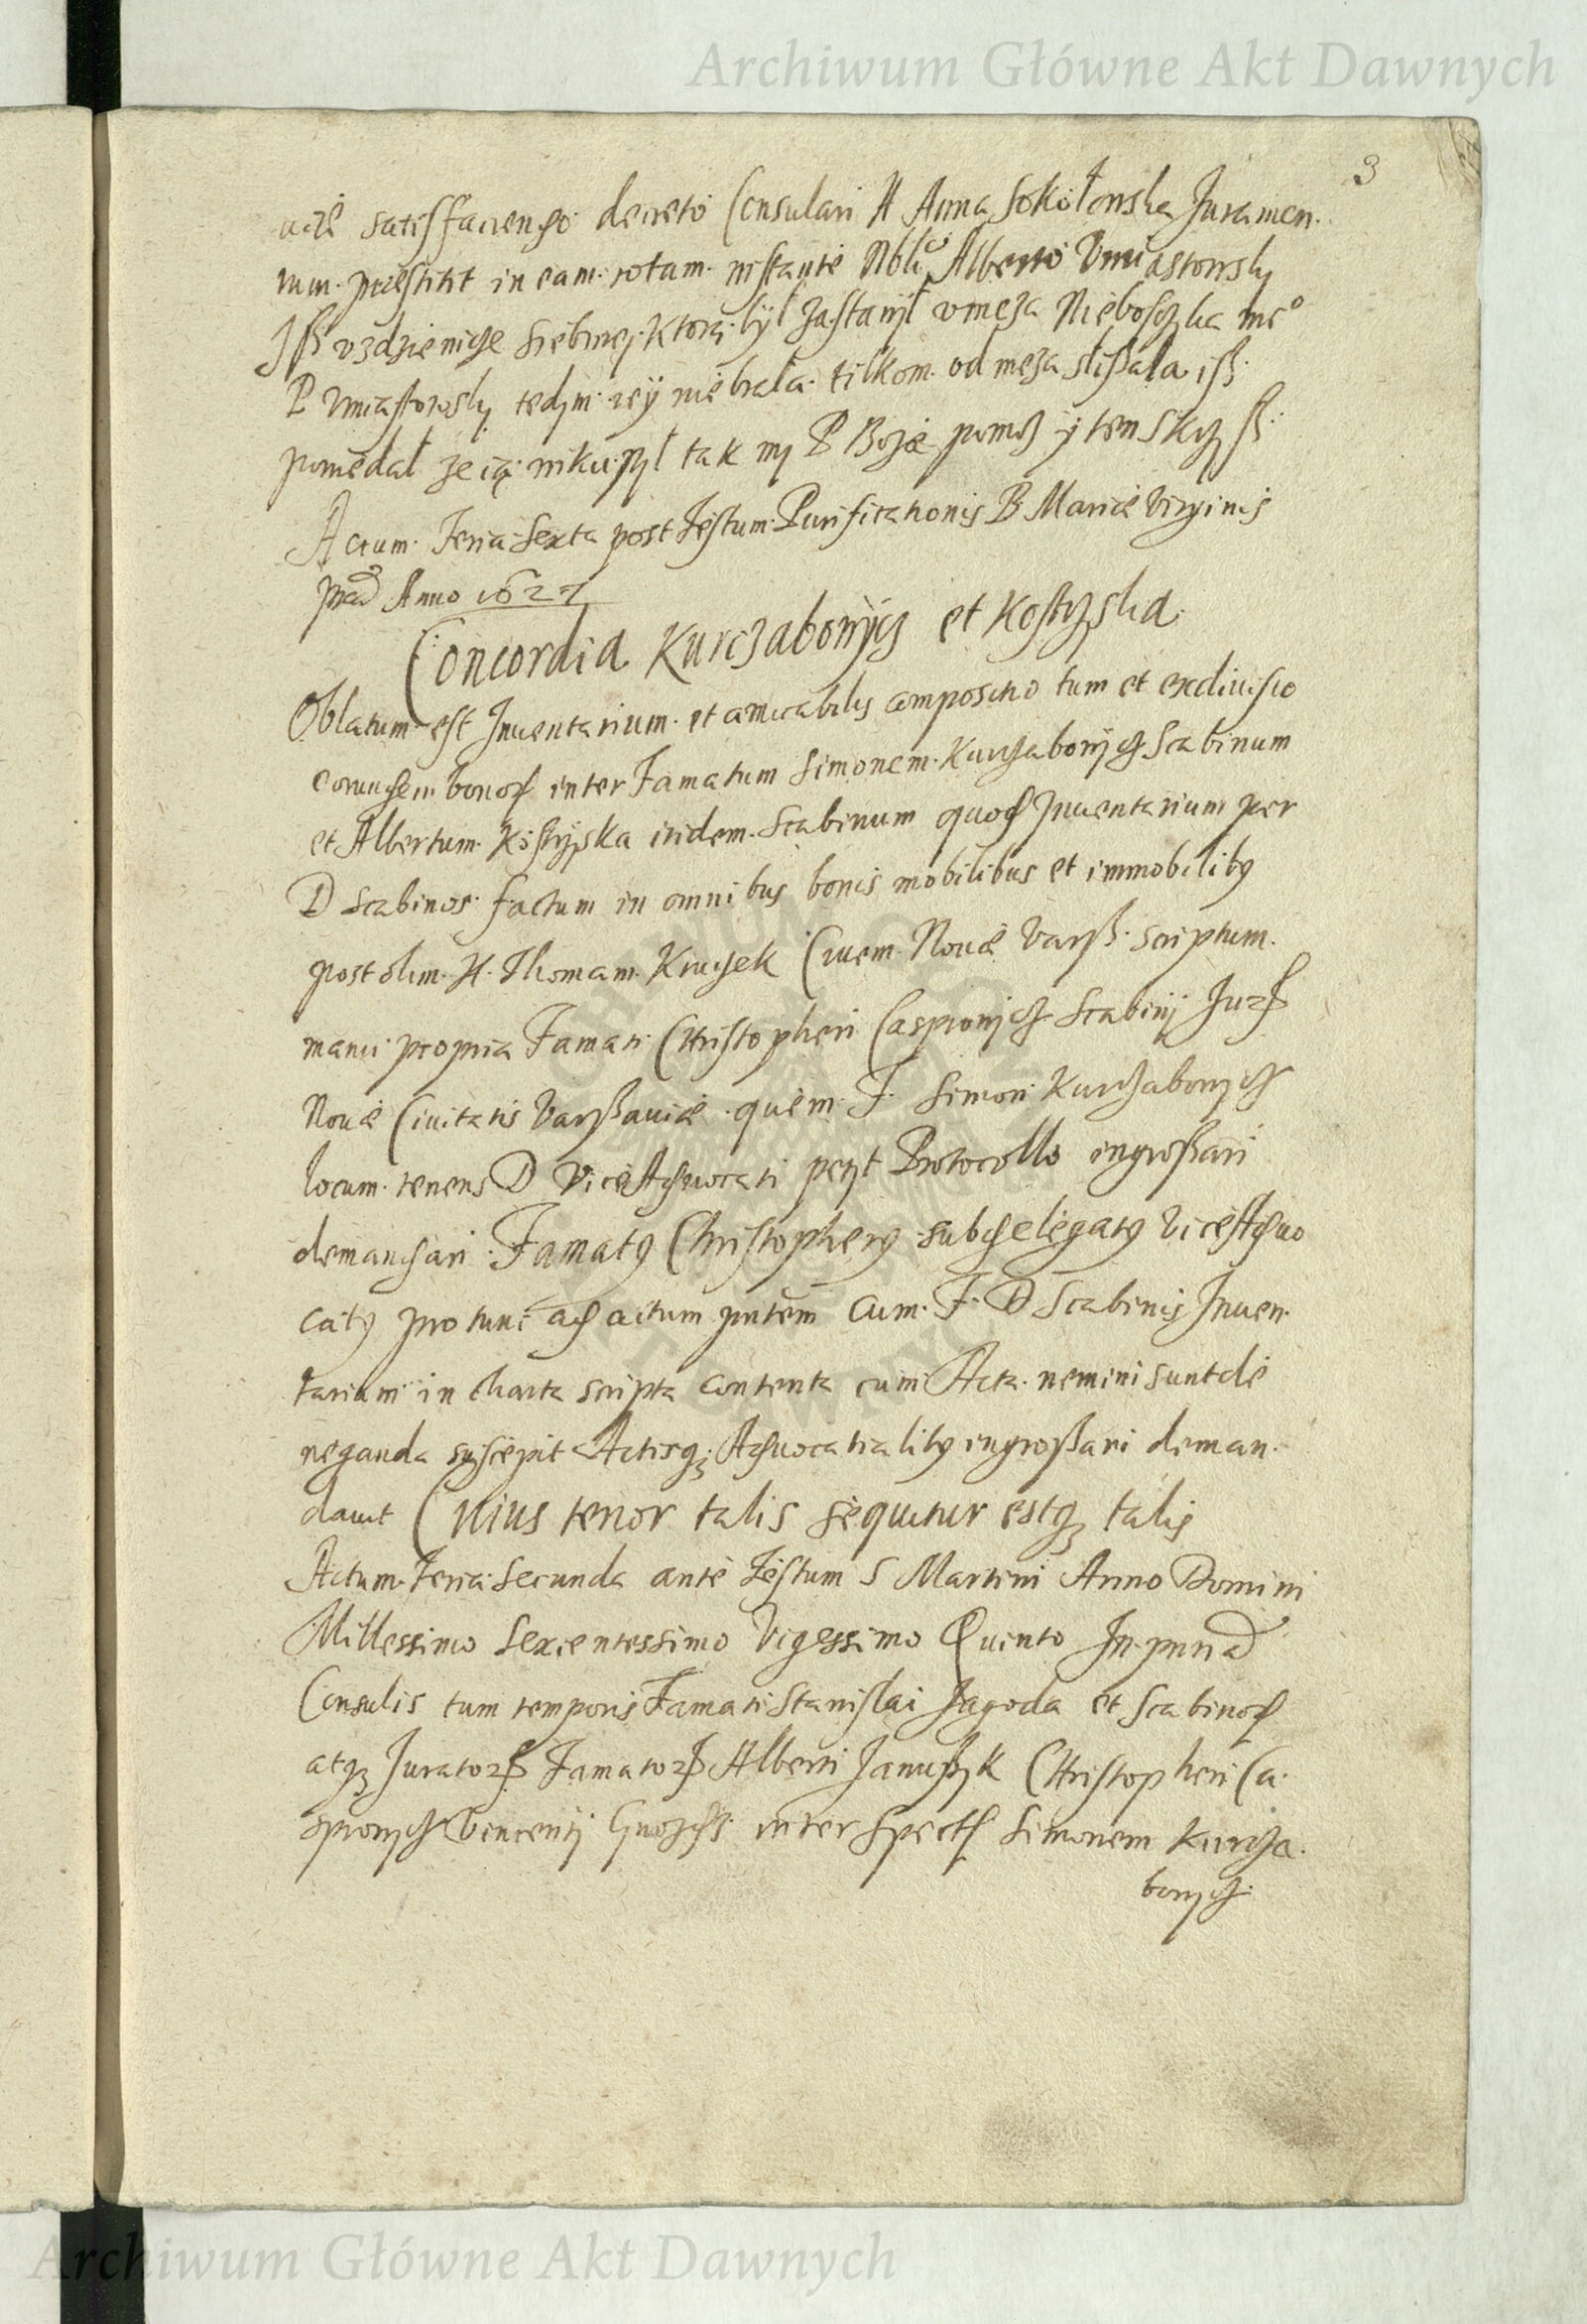 Archiwum Główne Akt Dawnych
3
satisfaciendo decreto Consulari H Anna Sokołowska Juramen.
tum praestitit in eam rotam instante Nobli Alberto Vmiastowsky
Jß vzdzienicze srebrnej ktorą był zastawył v męza Nieboszczka me°
P Vmiastowsky tedym iey nie brała tilkom od męza slißała iß
powiedał ze ią wikupył tak my P Boze pomoz y ten
Actum Feria Sexta post Festum Purificationis B Mariae Virginis
Anno 1627
Concordia Kurczabowycz et Kostyrska
Oblatum est Inuentarium et amicabilis compositio tum et exdiuisio
eorundem bonor inter Famatum Simonem Kurczabowycz Scabinum
et Albertum itidem Scabinum quod Inuentarium per
D Scabinos factum in omnibus bonis mobilibus et immobilibus
post olim H Thomam Kruczek Ciuem Nouae Varß scriptum
manu propria Famati Christopheri Casprowycz Scabinij Jur
Nouae Ciuitatis Varßauiae quem F Simon Kurczabowycz
locum tenens D ViceAduocati petyt Protocollo ingroßari
demandari Famatus Christopherus subdelegatus ViceAduo
catus pro tunc ad actum pntem cum F D Scabinis Inuen
tarium in charta scripta contenta cum Acta nemini sunt de
neganda suscepit Actisq Aduocatialibus ingroßari deman
dauit Cuius tenor talis sequitur estq talis
Actum Feria Secunda ante Festum S Martini Anno Domini
Millessimo Sexcentessimo Vigessimo Quinto In pntia
Consulis tum temporis Famati Stanislai Jagoda et Scabinor
atq Jurator Famator Alberti Janußyk Christopheri Ca
sprowycz Vincentij inter Spect Simonem Kurcza
bowycz
Archiwum Główne Akt Dawnych